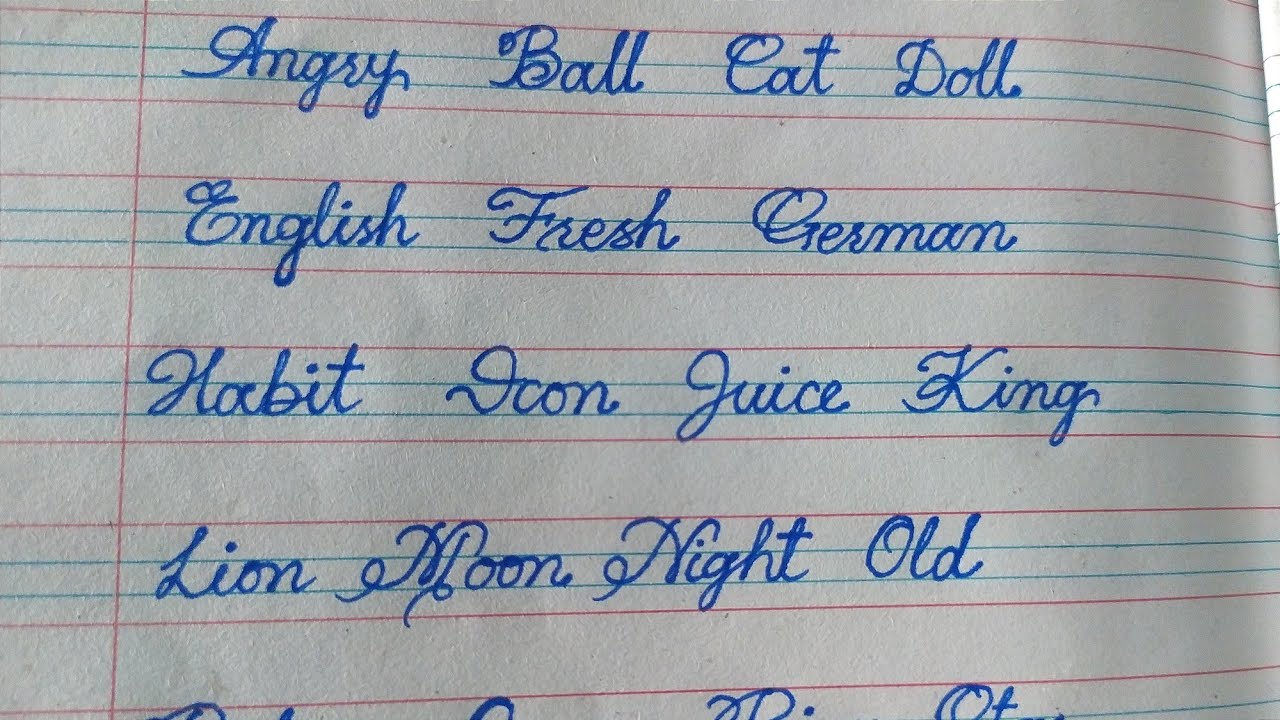 Angry Ball Cat Doll
English Fresh German
Habit Icon Juice King
Lion Moon Night Old